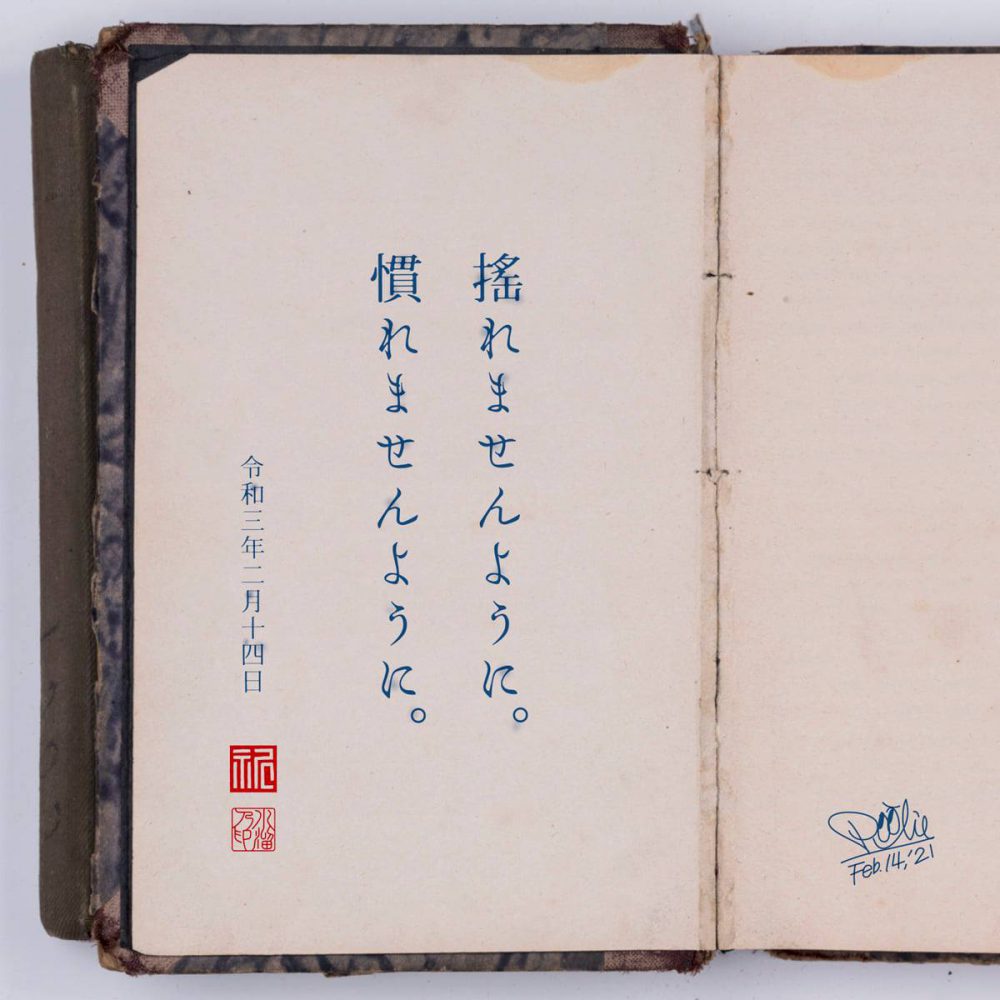 搖れませんように。
慣れませんように。
令和三年二月十四日
Poolie
Feb. 14, '21